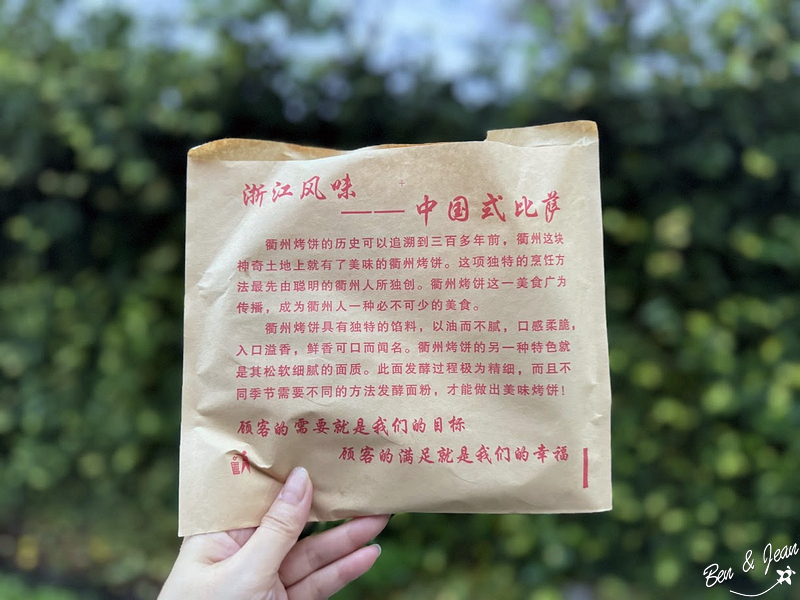 浙江风味
——中国式比萨
衢州烤饼的历史可以追溯到三百多年前，衢州这块
神奇土地上就有了美味的衢州烤饼。这项独特的烹饪方
法最先由聪明的衢州人所独创。衢州烤饼这一美食广为
传播，成为衢州人一种必不可少的美食。
衢州烤饼具有独特的馅料，以油而不腻，口感柔脆，
入口溢香，鲜香可口而闻名。衢州烤饼的另一种特色就
是其松软细腻的面质。此面发酵过程极为精细，而且不
同季节需要不同的方法发酵面粉，才能做出美味烤饼！
顾客的需要就是我们的目标
顾客的满足就是我们的幸福
Ben & Jean